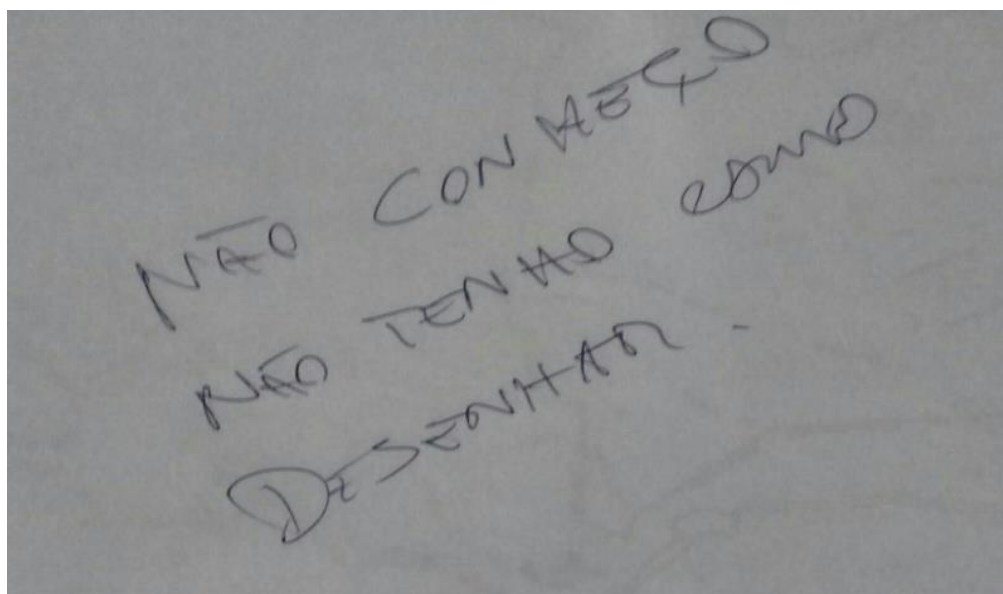 NÃO CONHEÇO
NÃO TENHO COMO
DESENHAR.